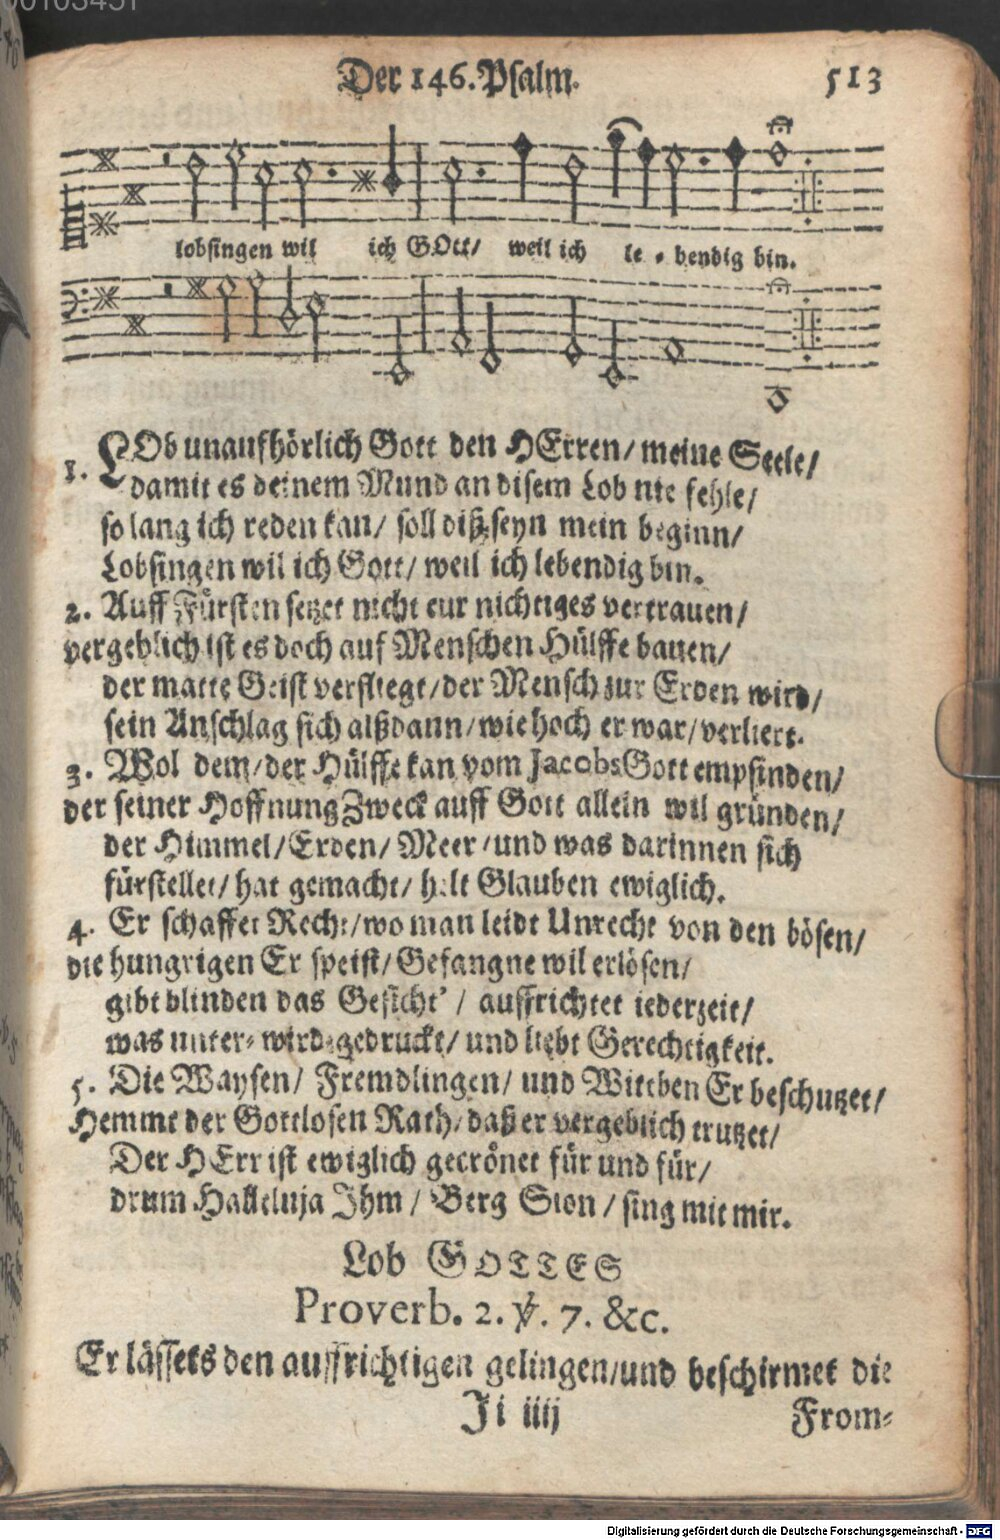 00103451
Der 146. Psalm. 513
lobsingen wil ich GOtt/ weil ich le - bendig bin.
1. LOb unaufhörlich Gott den HErren/ meine Seele/
damit es deinem Mund an disem Lob nie fehle/
so lang ich reden kan/ soll diß seyn mein beginn/
Lobsingen wil ich Gott/ weil ich lebendig bin.
2. Auff Fürsten setzet nicht eur nichtiges vertrauen/
vergeblich ist es doch auf Menschen Hülffe bauen/
der matte Geist verfliegt/ der Mensch zur Erden wird/
sein Anschlag sich alßdann/ wie hoch er war/ verliert.
3. Wol dem/ der Hülffe kan vom Jacobs Gott empfinden/
der seiner Hoffnung Zweck auff Gott allein wil gründen/
der Himmel/ Erden/ Meer/ und was darinnen sich
fürstellet/ hat gemacht/ helt Glauben ewiglich.
4. Er schaffet Recht/ wo man leidt Unrecht von den bösen/
die hungrigen Er speist/ Gefangne wil erlösen/
gibt blinden das Gesicht'/ auffrichtet iederzeit/
was unter- wird gedruckt/ und liebt Gerechtigkeit.
5. Die Waysen/ Fremdlingen/ und Wittben Er beschutzet/
Hemmt der Gottlosen Rath/ daß er vergeblich trutzet/
Der HErr ist ewiglich gecrönet für und für/
drum Halleluja Ihm/ Berg Sion/ sing mit mir.
Lob GOTTES
Proverb. 2. ℣. 7. &c.
Er lässets den auffrichtigen gelingen/ und beschirmet die
Ji iiij From-
Digitalisierung gefördert durch die Deutsche Forschungsgemeinschaft - DFG